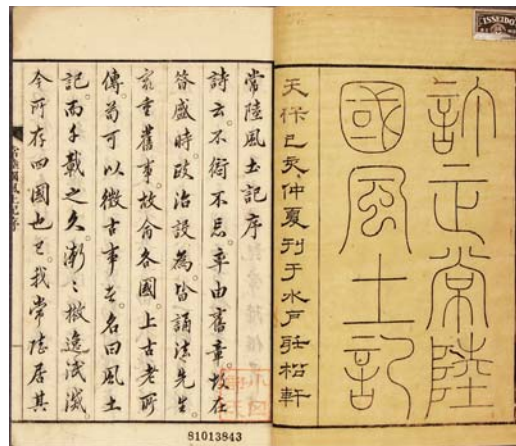 訂正常陸
國風土記
天保己亥仲夏刊于水戶聽松軒
常陸風土記序
詩云不愆不忘率由舊章故在
昔盛時政治設為皆誦法先生
最重舊事故命各國上古老所
傳苟可以徵古事者名曰風土
記而千載之久漸〻散逸泯滅
今所存四國也已我常陸居其
常陸國風土記序
ISSEIDO
81013843